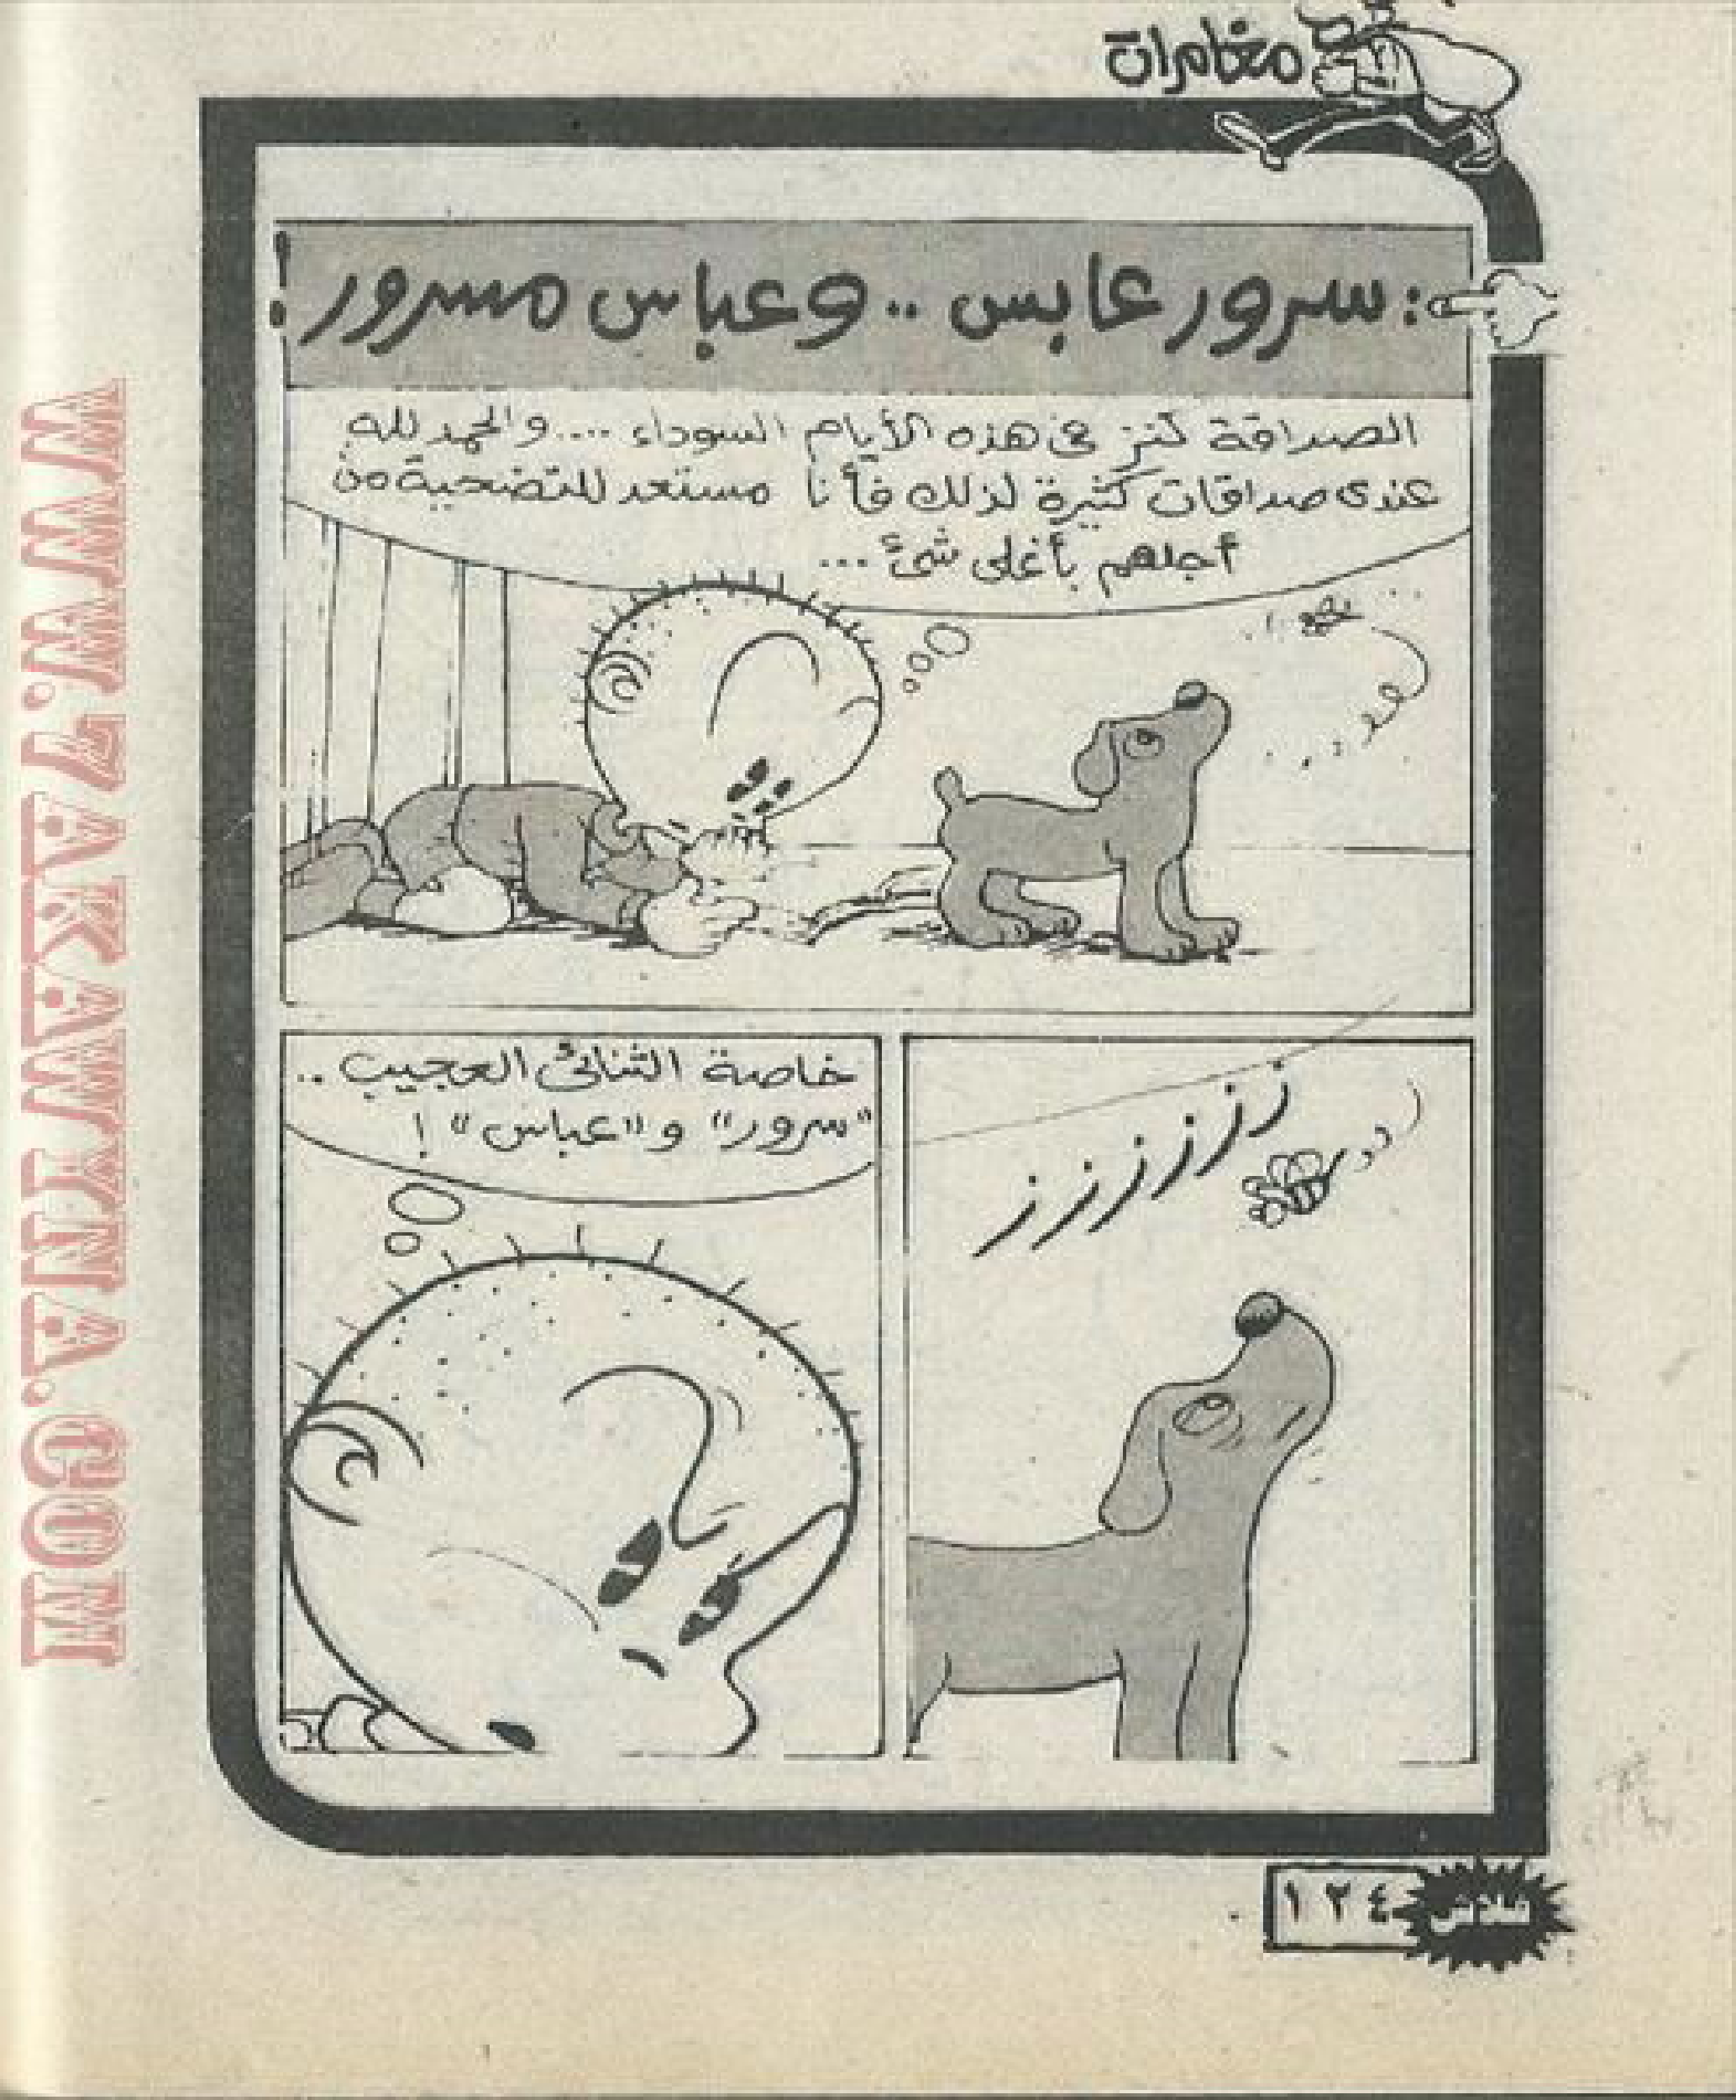 مغامرات
: سرور عابس .. وعباس مسرور !
الصداقة كنز فى هذه الأيام السوداء .... والحمد لله
عندى صداقات كثيرة لذلك فأنا مستعد للتضحية من
أجلهم بأغلى شئ ...
ززززززز
خاصة الثنائى العجيب ..
"سرور" و"عباس" !
فلاش
١٢٤
WWW.7AKAWAINA.COM